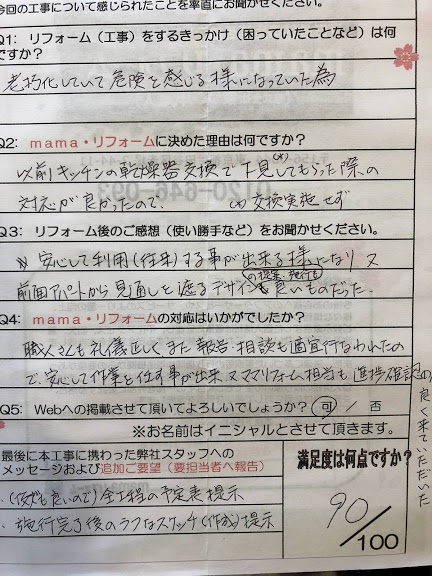 今回の工事について感じられたことを率直にお聞かせください。
Q1: リフォーム(工事)をするきっかけ(困っていたことなど)は何
ですか?
老朽化していて危険を感じる様になっていた為
Q2: mama・リフォームに決めた理由は何ですか?
以前キッチンの乾燥器交換で下見(※)してもらった際の
対応が良かったので、 (※)交換実施せず
Q3: リフォーム後のご感想(使い勝手など)をお聞かせください。
安心して利用(往来)する事が出来る様になり 又
前面アパートから見通しを遮るデザインの提案・施行も良いものだった。
Q4: mama・リフォームの対応はいかがでしたか?
職人さんも礼儀正しく また 報告・相談も適宜行なわれたの
で、安心して作業を任す事が出来、又ママリフォーム担当も進捗確認の為
良く来ていただいた
Q5: Webへの掲載させて頂いてよろしいでしょうか? 可 / 否
※お名前はイニシャルとさせて頂きます。
最後に本工事に携わった弊社スタッフへの
メッセージおよび追加ご要望(要担当者へ報告)
満足度は何点ですか?
・(仮でも良いので)全工程の予定表提示
・施行完了後のラフなスケッチ(作成)提示
90/100